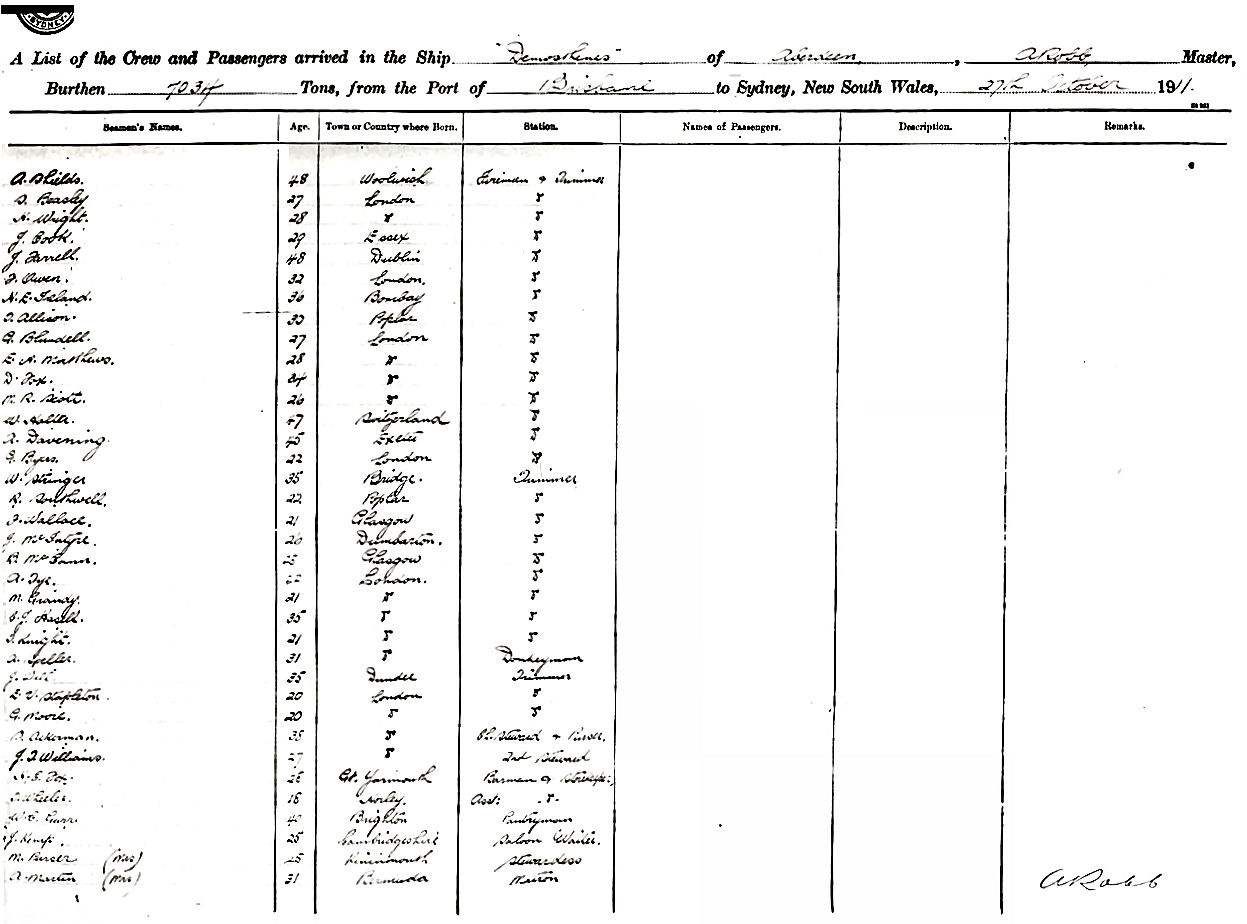 SYDNEY
A List of the Crew and Passengers arrived in the Ship "Demosthenes" of Aberdeen, A Robb, Master,
Burthen 7034 Tons, from the Port of Brisbane to Sydney, New South Wales, 27th October 1911.
Seamen's Names. Age. Town or Country where Born. Station. Names of Passengers. Description. Remarks.
A. Shields. 48 Woolwich Fireman & Trimmer
Beasley 27 London "
H. Wright. 28 " "
J. Cook. 29 Essex "
J. Farrell. 48 Dublin "
F. Owen. 32 London. "
H. E. Ireland. 36 Bombay "
Allison. 33 Poplar "
G. Blundell. 27 London "
E. A. Matthews. 28 " "
D. Fox. 24 " "
M. R. Scott. 26 " "
W. 47 Switzerland "
A. Davening. 45 Exeter "
G. Byers. 22 London "
W. Stringer 35 Bridge. Trimmer
R. Southwell. 22 Poplar "
F. Wallace. 21 Glasgow "
J. McIntyre. 20 Dumbarton. "
Glasgow "
A. Tye. London. "
M. Grandy. 21 " "
J. 35 " "
Knight. 21 " "
A. Speller. 31 " Donkeyman
J. Bell 35 Dundee Trimmer
E. V. Stapleton. 20 London "
G. Moore. 20 " "
Ackerman. 38 " Ch. Steward & Purser.
J. T. Williams. 27 " 2nd Steward
Fox. 26 Gt. Yarmouth Barman & Storekpr:
Wheeler. 18 Asst: "
W. C. 40 Brighton Pantryman
J. Kemp. 25 Cambridgeshire Saloon Waiter.
M. Purser (Mrs) 45 Stewardess
A. Martin (Mrs) 31 Bermuda Matron
A Robb